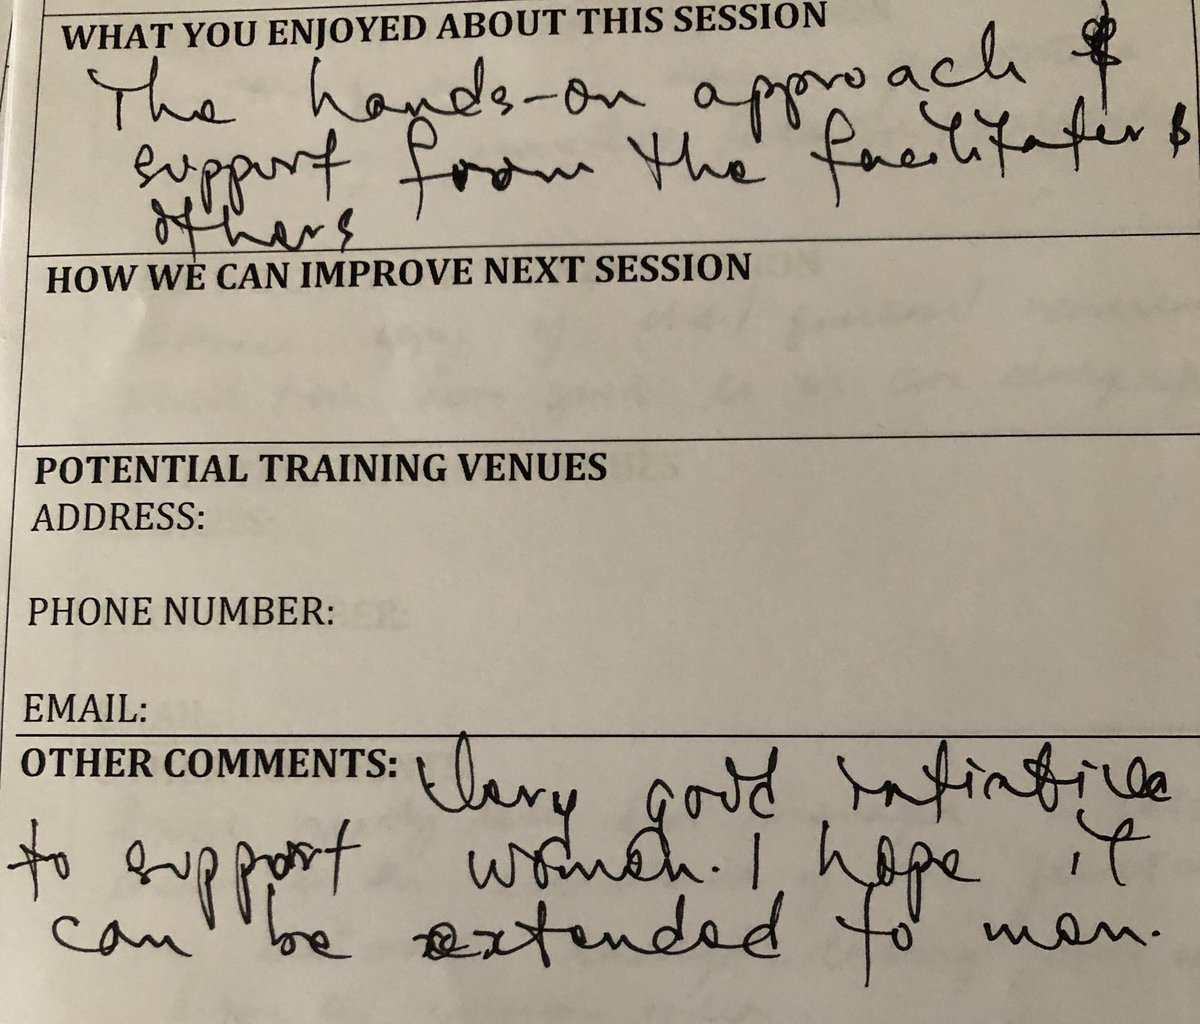 WHAT YOU ENJOYED ABOUT THIS SESSION
The hands-on approach &
support from the facilitater &
others
HOW WE CAN IMPROVE NEXT SESSION
POTENTIAL TRAINING VENUES
ADDRESS:
PHONE NUMBER:
EMAIL:
OTHER COMMENTS: Very good intiative
to support women. I hope it
can be extended to men.